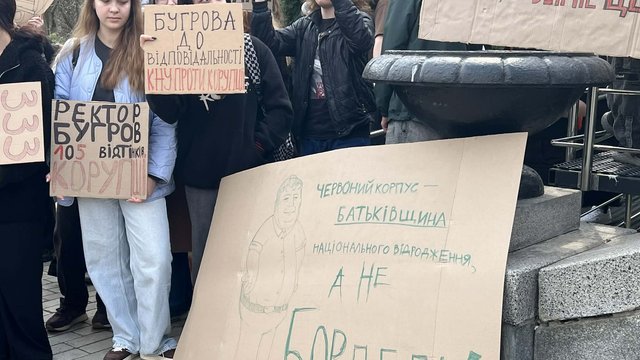 БУГРОВА
ДО
ВІДПОВІДАЛЬНОСТІ
КНУ ПРОТИ КОРУПЦІЇ
РЕКТОР
БУГРОВ
105 ВІДТІНКІВ
КОРУПЦІЇ
333
ЧЕРВОНИЙ КОРПУС –
БАТЬКІВЩИНА
НАЦІОНАЛЬНОГО ВІДРОДЖЕННЯ,
А НЕ